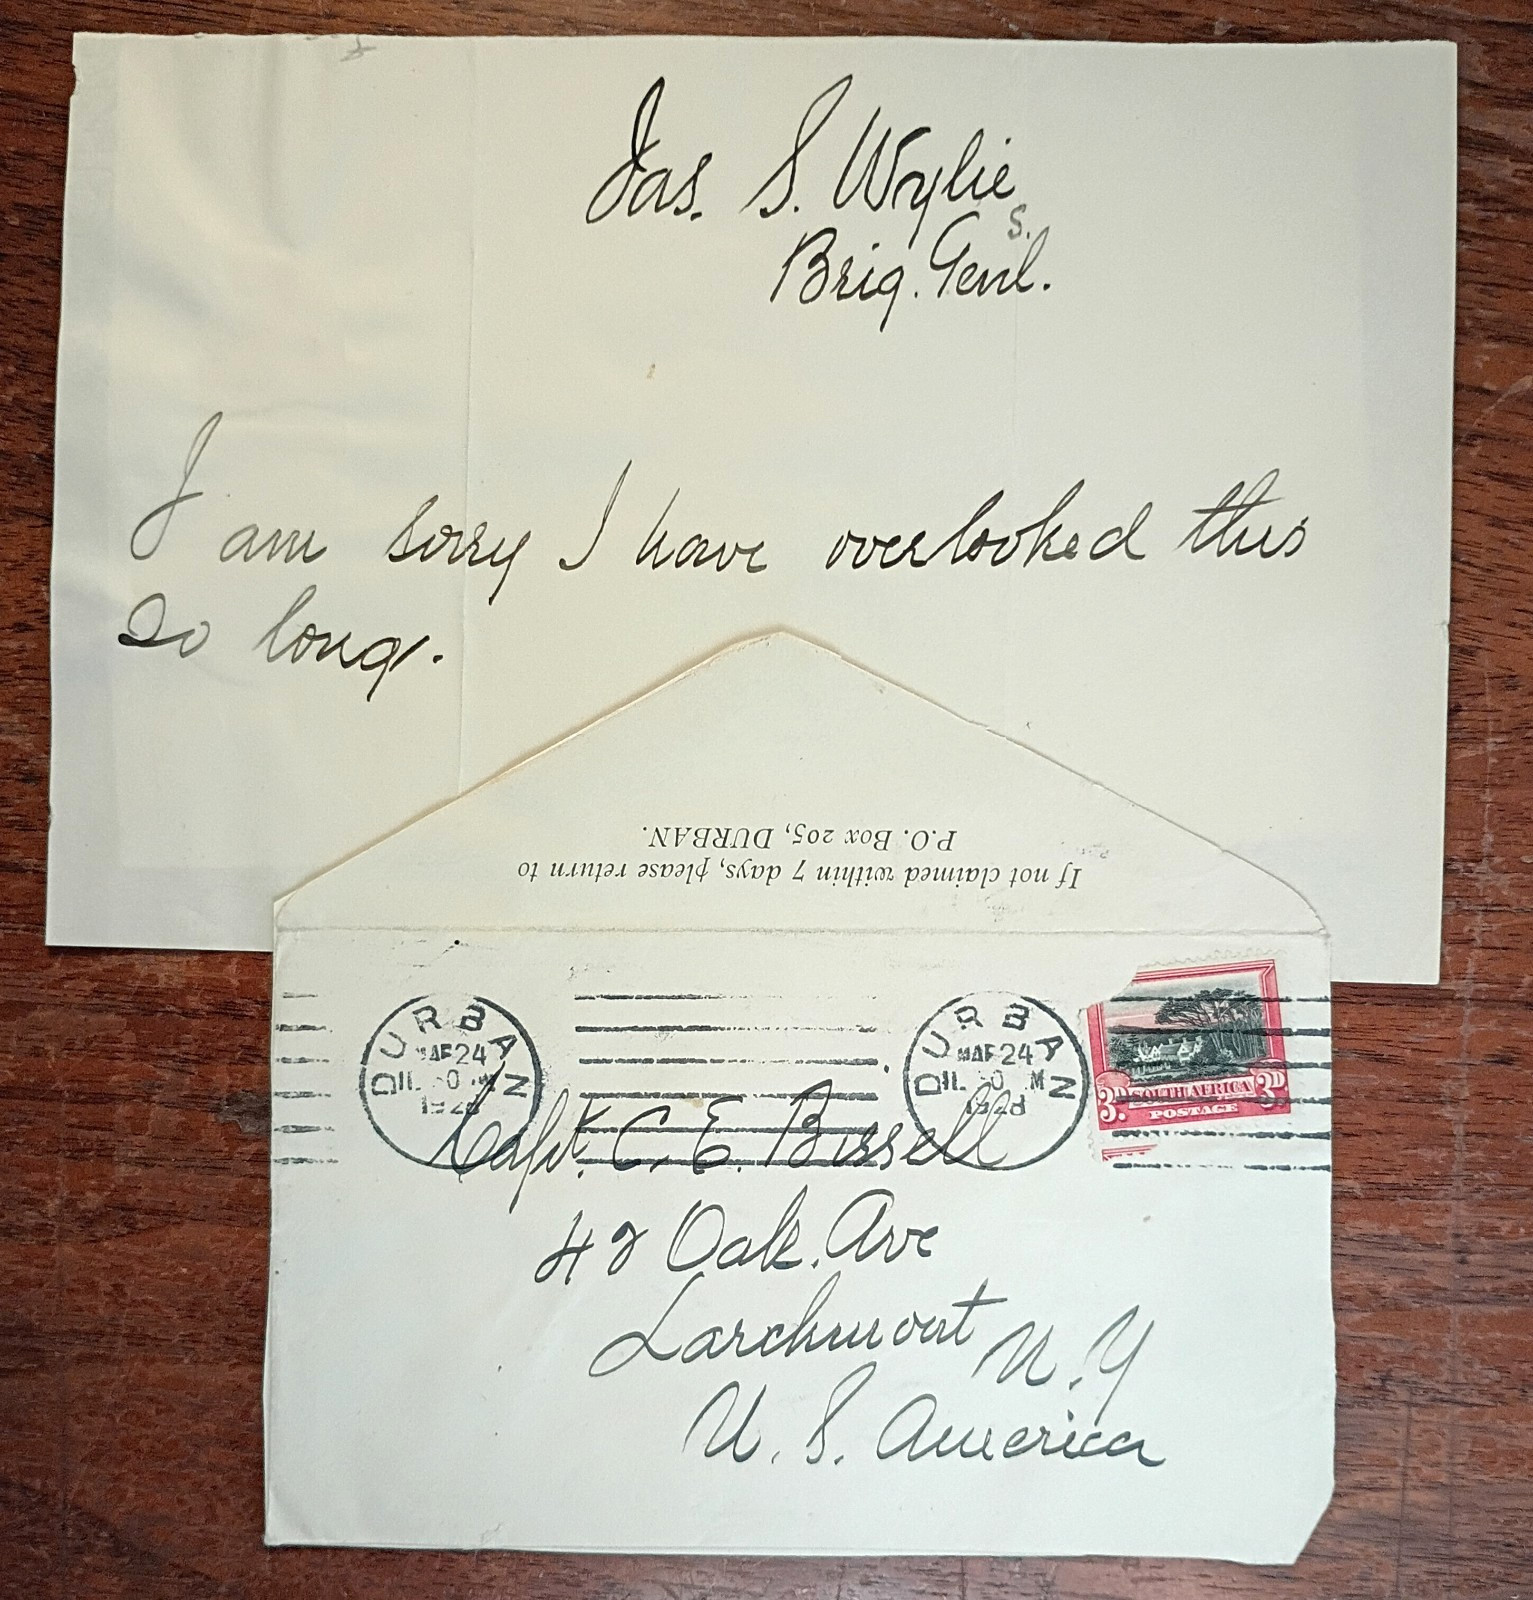 Jas. S. Wylie
S.
Brig. Genl.
I am sorry I have overlooked this
so long.
If not claimed within 7 days, please return to
P.O. Box 205, DURBAN.
DURBAN
MAR 24
DURBAN
MAR 24
3D. SOUTH AFRICA 3D
POSTAGE
Capt. C. E. Bissell
42 Oak. Ave
Larchmont N.Y
U. S. America